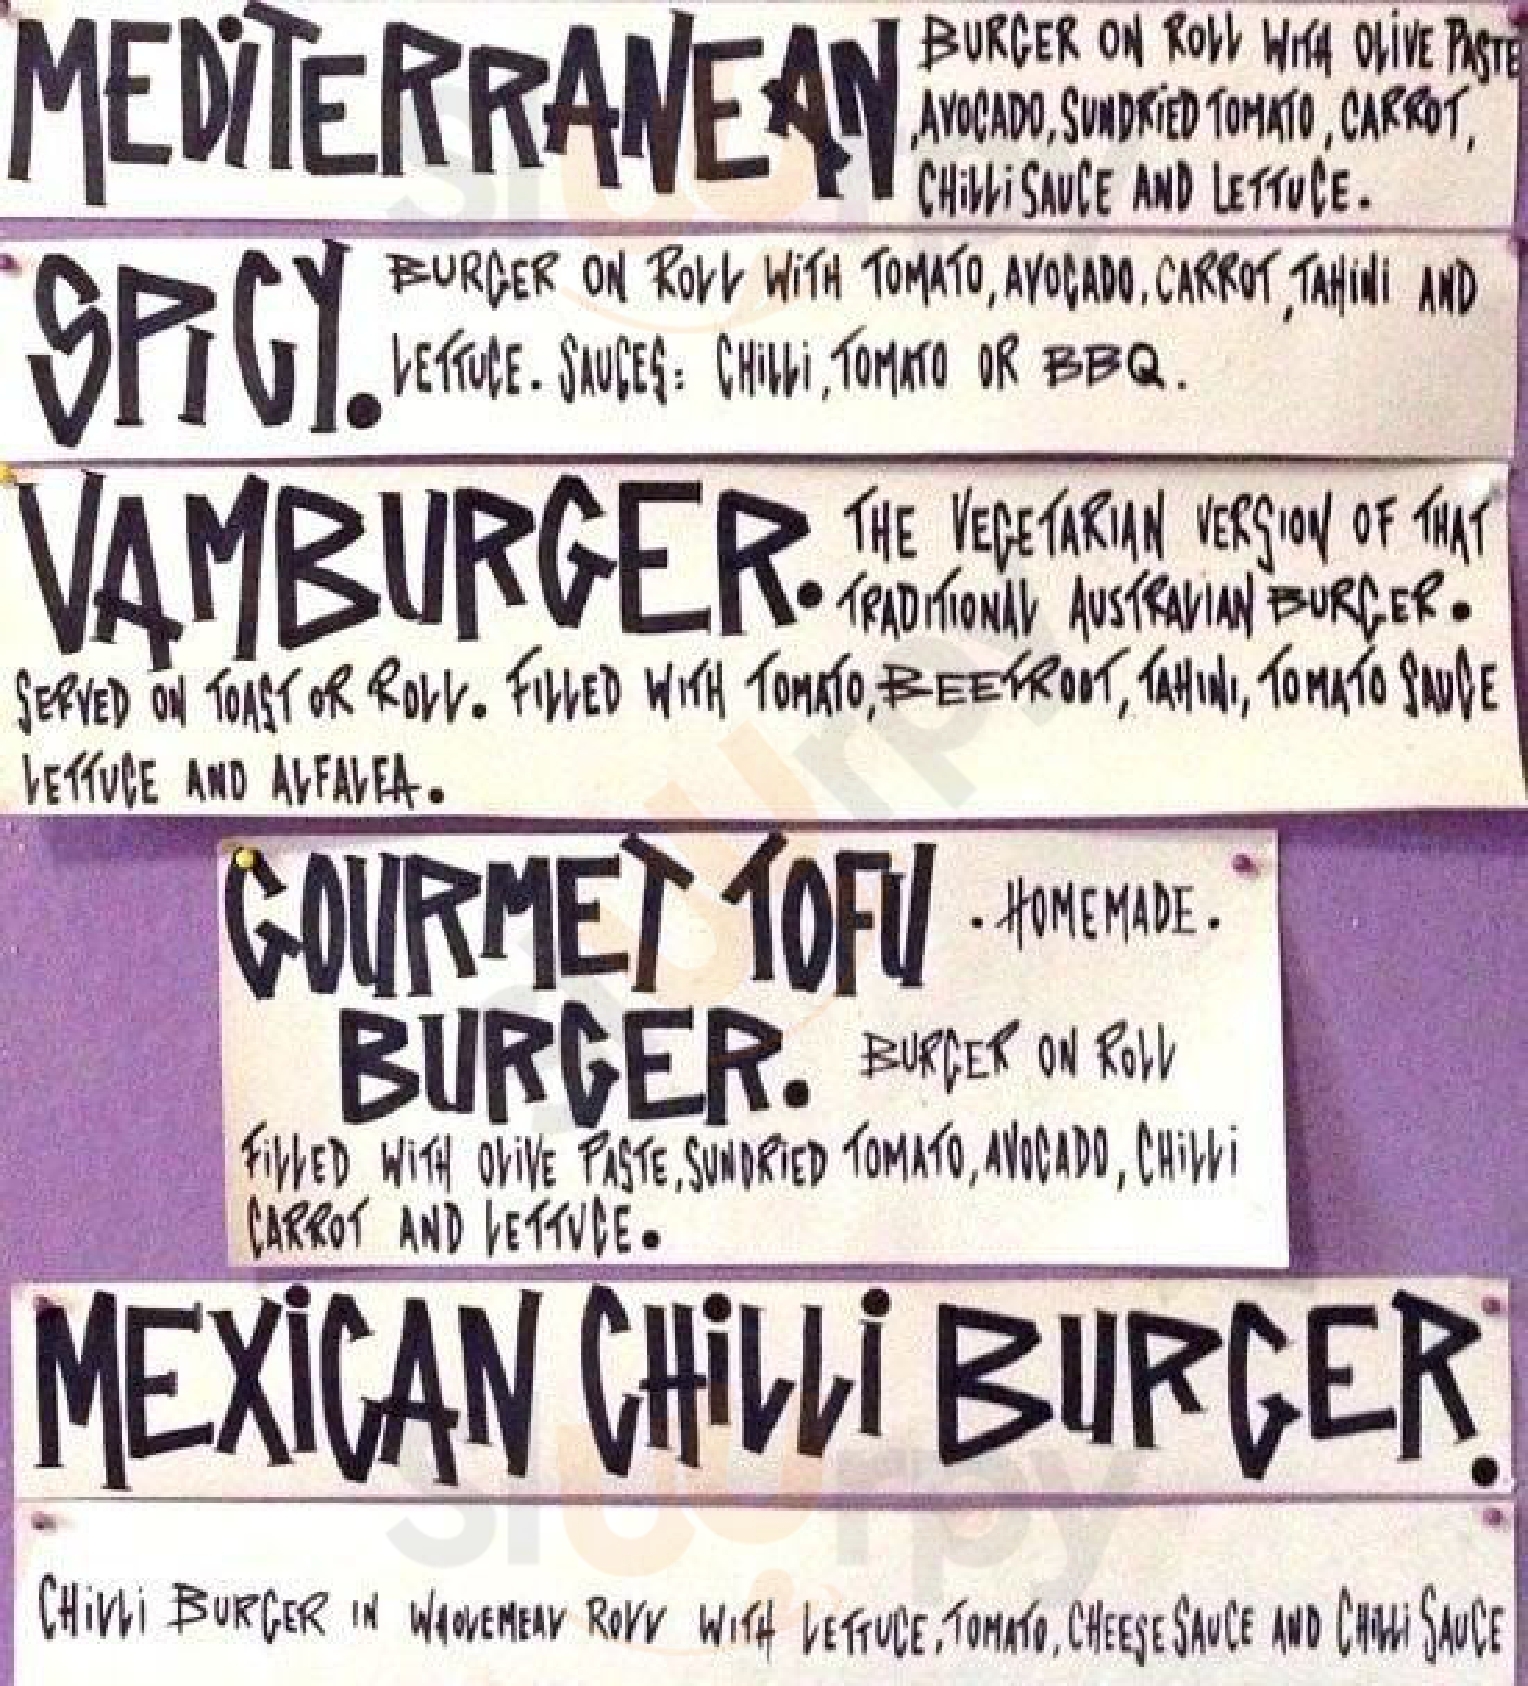 MEDITERRANEAN
BURGER ON ROLL WITH OLIVE PASTE
,AVOCADO, SUNDRIED TOMATO, CARROT,
CHILLI SAUCE AND LETTUCE.
SPICY.
BURGER ON ROLL WITH TOMATO, AVOCADO, CARROT, TAHINI AND
LETTUCE. SAUCES: CHILLI, TOMATO OR BBQ.
VAMBURGER.
THE VEGETARIAN VERSION OF THAT
TRADITIONAL AUSTRALIAN BURGER.
SERVED ON TOAST OR ROLL. FILLED WITH TOMATO, BEETROOT, TAHINI, TOMATO SAUCE
LETTUCE AND ALFALFA.
GOURMET TOFU
. HOMEMADE.
BURGER.
BURGER ON ROLL
FILLED WITH OLIVE PASTE, SUNDRIED TOMATO, AVOCADO, CHILLI
CARROT AND LETTUCE.
MEXICAN CHILLI BURGER.
CHILLI BURGER IN WHOLEMEAL ROLL WITH LETTUCE, TOMATO, CHEESE SAUCE AND CHILLI SAUCE
sluurpy
sluurpy
sluurpy
sluurpy